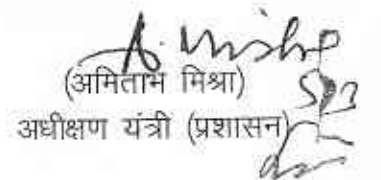 A. Mishra
(अमिताभ मिश्रा)
अधीक्षण यंत्री (प्रशासन)